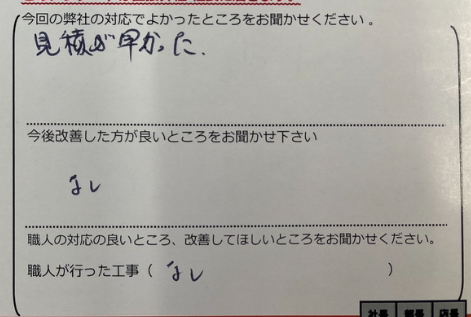 今回の弊社の対応でよかったところをお聞かせください。
見積が早かった.
今後改善した方が良いところをお聞かせ下さい
なし
職人の対応の良いところ、改善してほしいところをお聞かせください。
職人が行った工事（ なし ）
社長 部長 店長